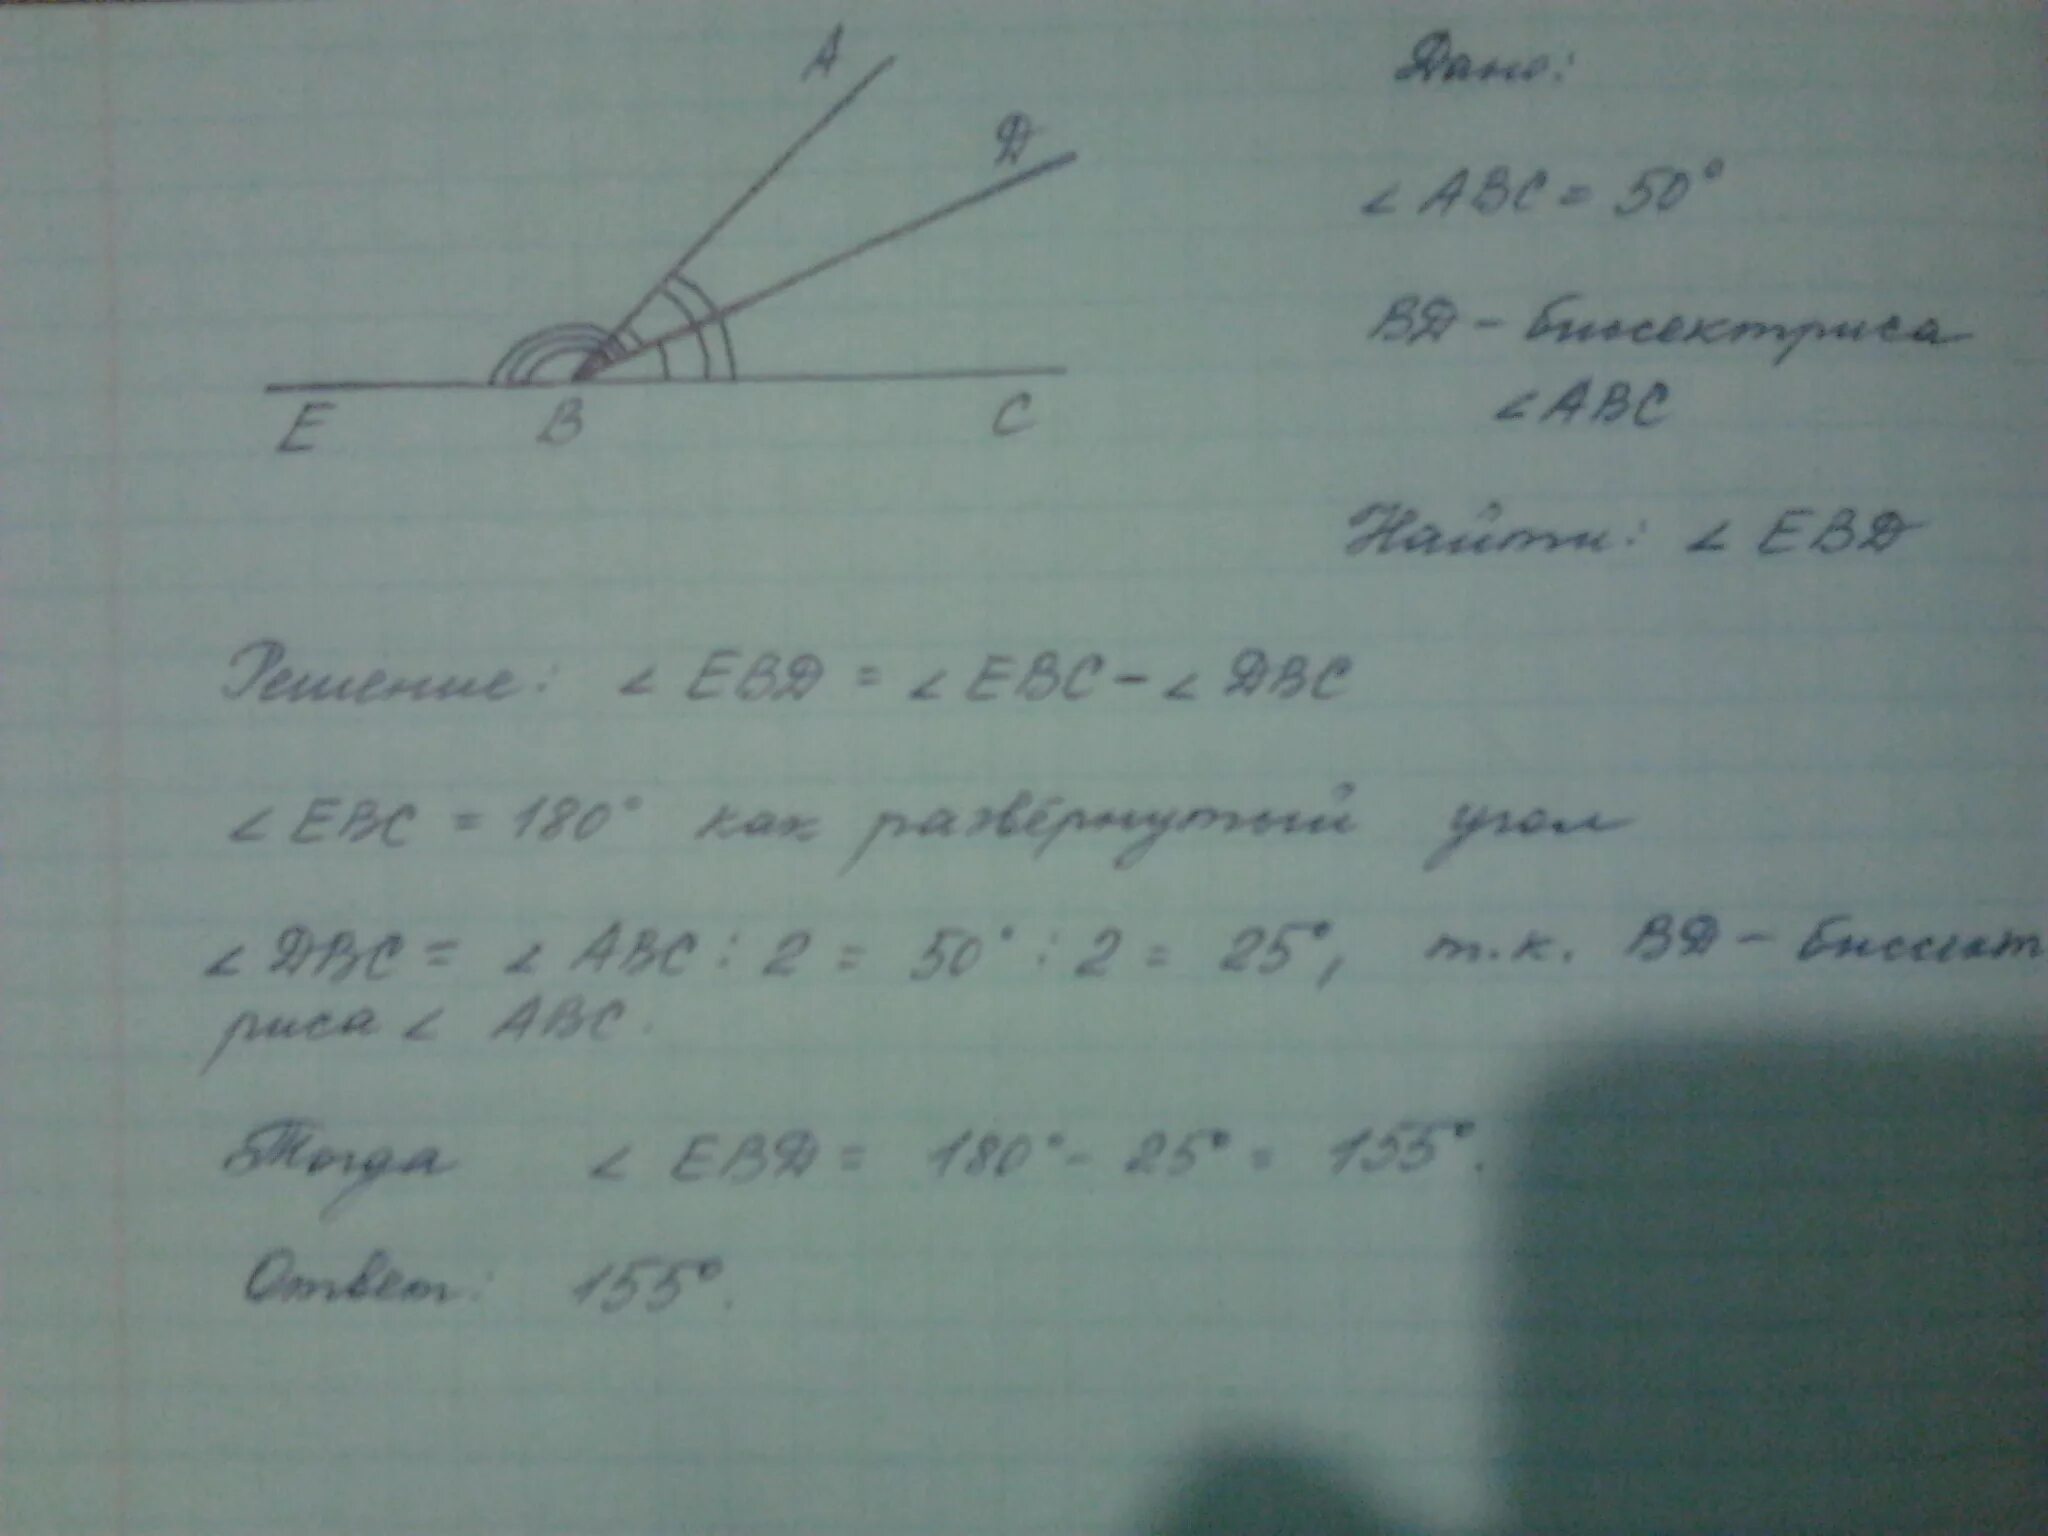 A
D
E
B
C
Дано:
∠ABC = 50°
BD - биссектриса
∠ABC
Найти: ∠EBD
Решение: ∠EBD = ∠EBC - ∠DBC
∠EBC = 180° как развёрнутый угол
∠DBC = ∠ABC : 2 = 50° : 2 = 25°, т.к. BD - биссект
риса ∠ABC.
Тогда ∠EBD = 180° - 25° = 155°.
Ответ: 155°.